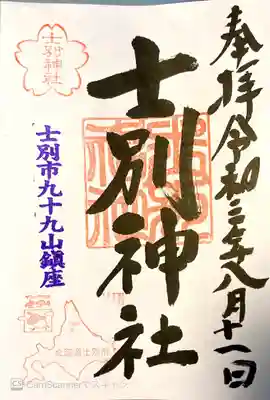 奉拝令和三年八月十一日
士別神社
士別神社
士別市九十九山鎮座
北海道士別市
CS CamScannerでスキャン